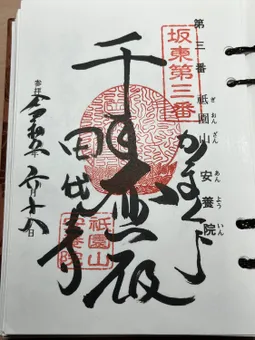 第三番 祇園山 安養院
ぎ おん ざん あん よう いん
坂東第三番
かまくら
千手
殿
田代寺
祇園山
安養院
令和
六月十八日